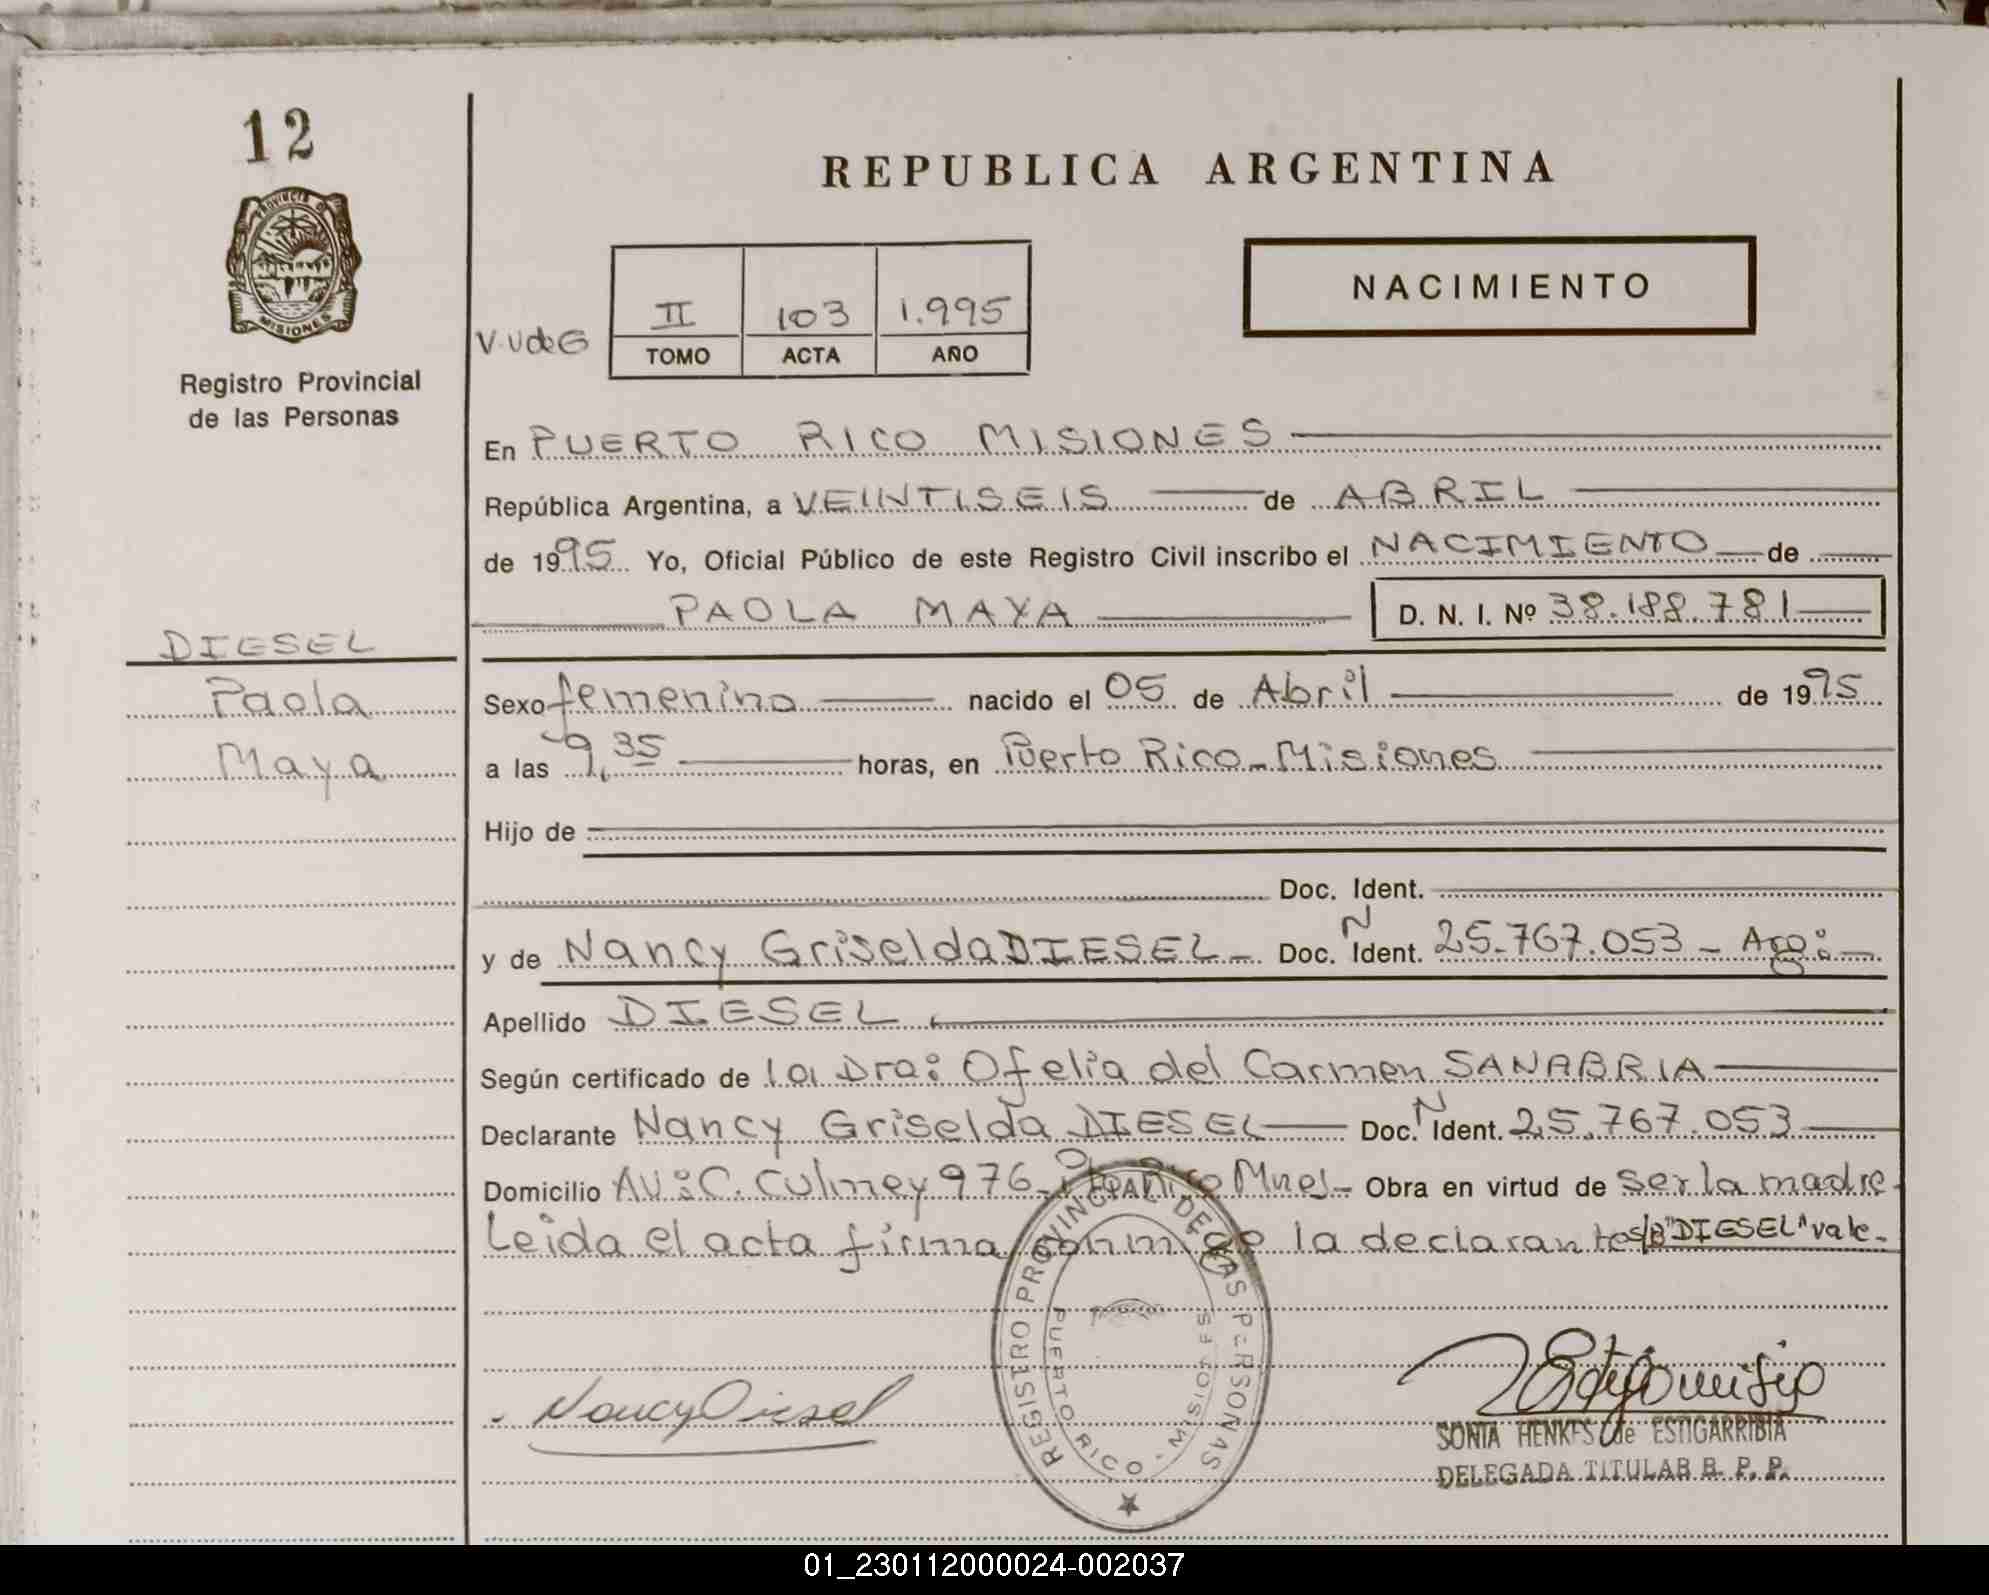 12
PROVINCIA DE
MISIONES
Registro Provincial
de las Personas
DIESEL
Paola
Maya
REPUBLICA ARGENTINA
NACIMIENTO
V.UdeG
II 103 1.995
TOMO ACTA AÑO
En PUERTO RICO MISIONES
República Argentina, a VEINTISEIS de ABRIL
de 1995 Yo, Oficial Público de este Registro Civil inscribo el NACIMIENTO de
PAOLA MAYA D. N. I. Nº 38.188.781
Sexo femenino nacido el 05 de Abril de 1995
a las 9,35 horas, en Puerto Rico - Misiones
Hijo de
Doc. Ident.
y de Nancy Griselda DIESEL - Doc. N Ident. 25.767.053 - Arg:
Apellido DIESEL
Según certificado de la Dra: Ofelia del Carmen SANABRIA
Declarante Nancy Griselda DIESEL Doc. N Ident. 25.767.053
Domicilio AV: C. Culmey 976 - Pto Rico Mnes - Obra en virtud de ser la madre -
Leida el acta firma conmigo la declarante s/B "DIESEL" vale.
REGISTRO PROVINCIAL DE LAS PERSONAS
PUERTO RICO - MISIONES
Nancy Diesel
SONIA HENKES de ESTIGARRIBIA
DELEGADA TITULAR R. P. P.
01_230112000024-002037